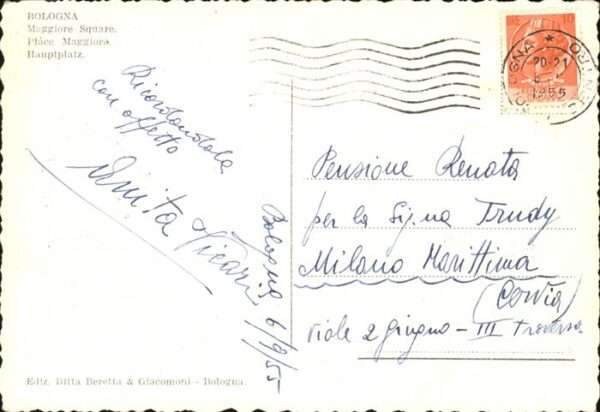 BOLOGNA
Maggiore Square.
Plàce Maggiore.
Hauptplatz.
Ricordandola
con affetto
Vicari
Bologna 6/9/55
10
20-21
1955
Pensione Renata
per la Sig.na Trudy
Milano Marittima
(Cervia)
Viale 2 giugno - III Traversa
Ediz. Ditta Beretta & Giacomoni - Bologna.